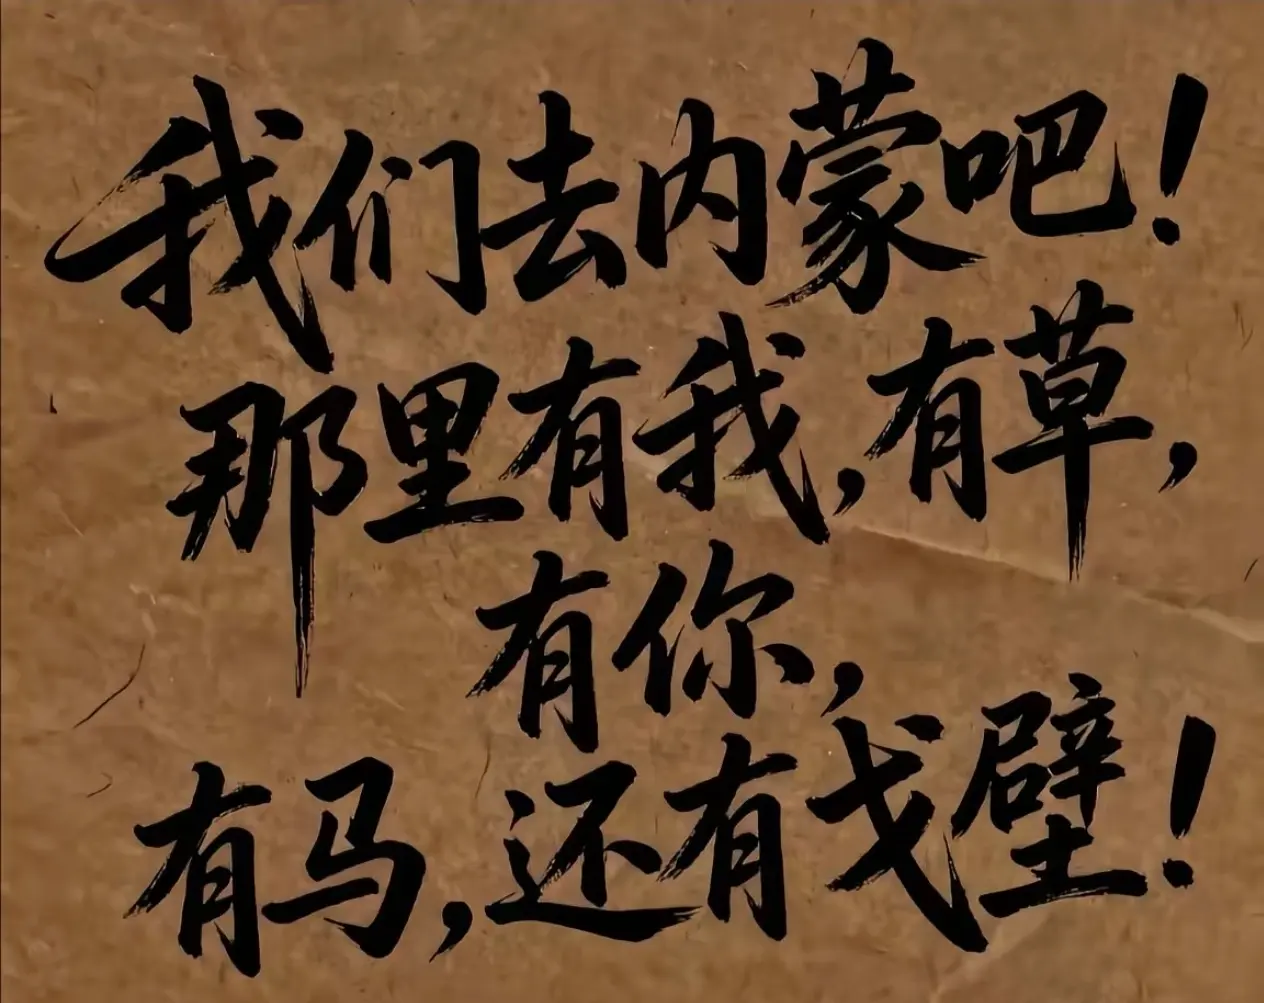 我们去内蒙吧！
那里有我，有草，
有你，
有马，还有戈壁！